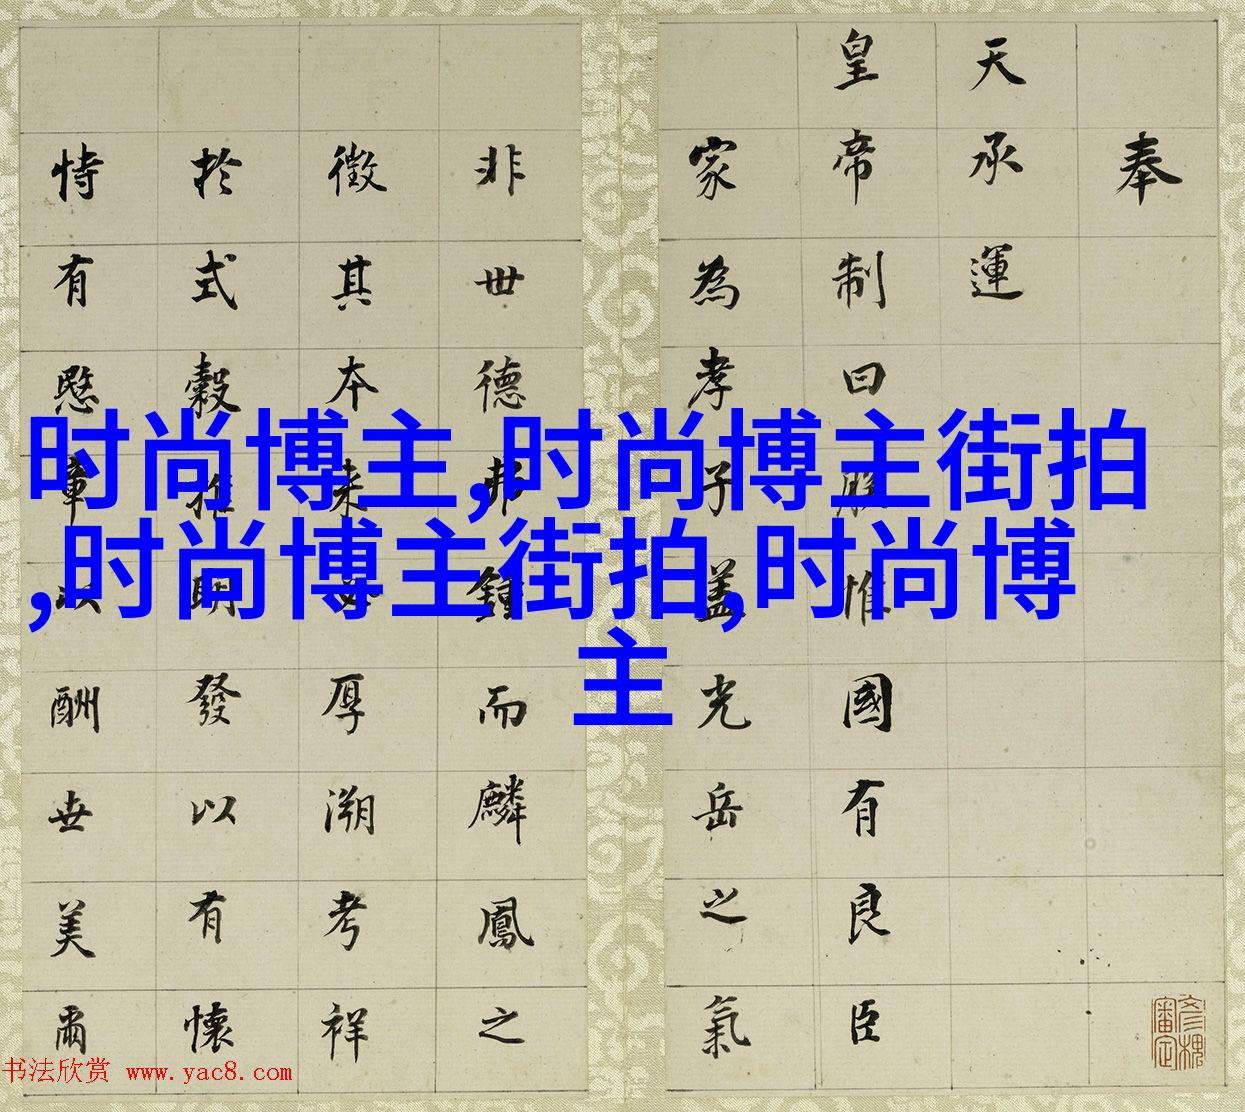 奉
天承運
皇帝制曰朕惟國有良臣
家為孝子蓋光岳之氣
非世德弗鍾而麟鳳之
徵其本厚溯考祥
於式穀推明發以有懷
有愍章以酬世美爾
时尚博主,时尚博主街拍
,时尚博主街拍,时尚博
主
彦槐
審定
书法欣赏 www.yac8.com